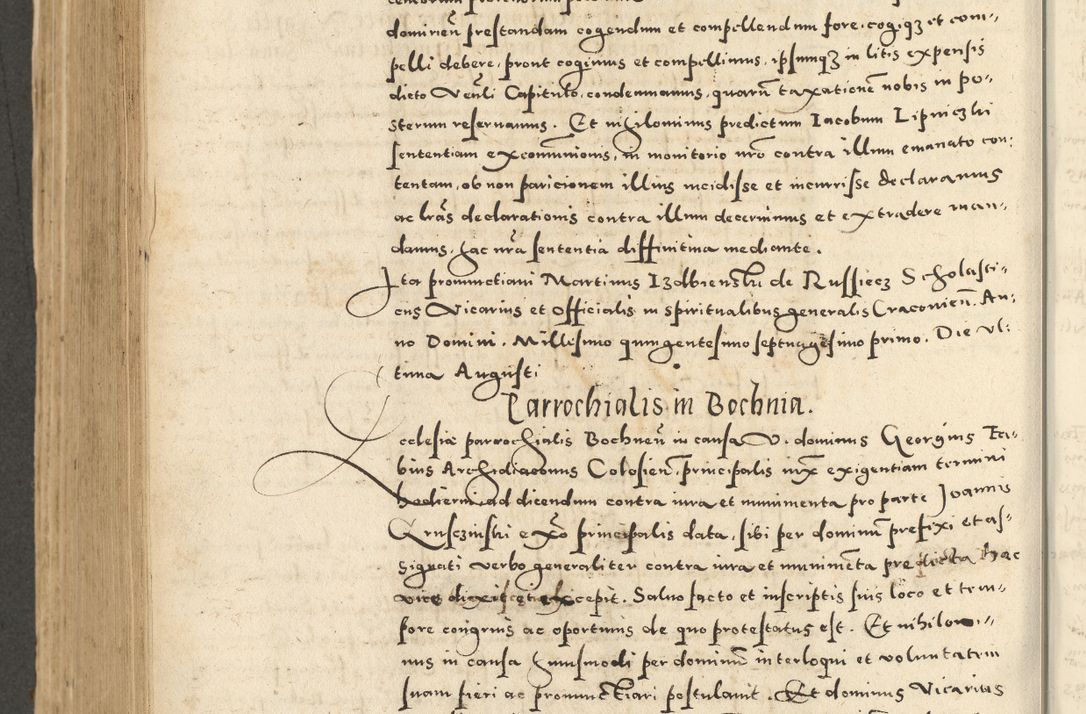 domirieñ prestandam cogendum et compellendum fore. cogiqꝫ et com-
pelli debere, prout cogimus et compellimus, ipsumqꝫ in litis expensis
dicto Veñli Capitulo, condemnamus, quarum taxationem nobis in po-
sterum reservamus. Et nihilominus predictum Iacobum Lipniczki
sententiam excommunionis, in monitorio nro contra illum emanato con-
tentam, ob non paricionem illius incidisse et incurrisse declaramus
ac lras declarationis contra illum decernimus et extradere man-
damus, hac nra sententia diffinitiva mediante.
Ita pronunctiavi Martinus Izdbienski de Russiecz Scholasti-
cus Vicarius et Officialis in spiritualibus generalis Cracovien. An-
no Domini. Millesimo quingentesimo septuagesimo primo. Die Ul-
tima Augusti
Parrochialis in Bochnia.
Ecclesiæ parrochialis Bochneñ in causa V. dominus Georgius Fa-
bius Archidiaconus Colosien. principalis iux exigentiam termini
hodierni ad dicendum contra iura et munimenta pro parte Joannis
Krusczinski ex º principalis data, sibi per dominum prefixi et as-
signati verbo generaliter contra iura et munimenta predicta hac
vice dixit et excepit. Salvo facto et inscriptis suis loco et tem-
pore congruis ac oportunis de quo protestatus est. Et nihilomi-
nus in causa huiusmodi per dominum interloqui et voluntatem
suam fieri ac pronunctiari postulavit. Et dominus Vicarius